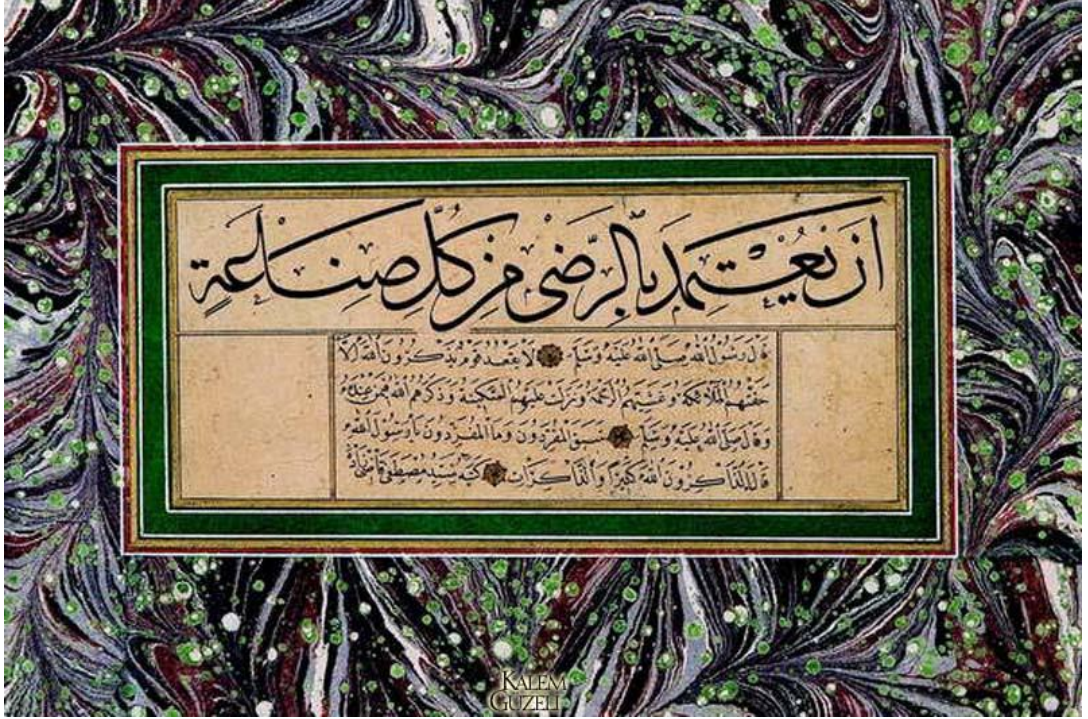 اَنْ يَعْتَمِدَ بِالرِّضٰى مِنْ كُلِّ صِنَاعَةٍ
قَالَ رَسُولُ اللّٰهِ صَلَّى اللّٰهُ عَلَيْهِ وَسَلَّمَ لَا يَقْعُدُ قَوْمٌ يَذْكُرُونَ اللّٰهَ اِلَّا
حَفَّتْهُمُ الْمَلَائِكَةُ وَغَشِيَتْهُمُ الرَّحْمَةُ وَنَزَلَتْ عَلَيْهِمُ السَّكِينَةُ وَذَكَرَهُمُ اللّٰهُ فِيمَنْ عِنْدَهُ
وَقَالَ صَلَّى اللّٰهُ عَلَيْهِ وَسَلَّمَ سَبَقَ الْمُفَرِّدُونَ وَمَا الْمُفَرِّدُونَ يَا رَسُولَ اللّٰهِ
قَالَ الذَّاكِرُونَ اللّٰهَ كَثِيرًا وَالذَّاكِرَاتِ كَتَبَهُ سَيِّد مُصْطَفٰى
KALEM
GÜZELİ